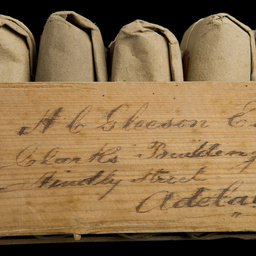 H C Gleeson E
Clark's Building
Hindley Street
Adela